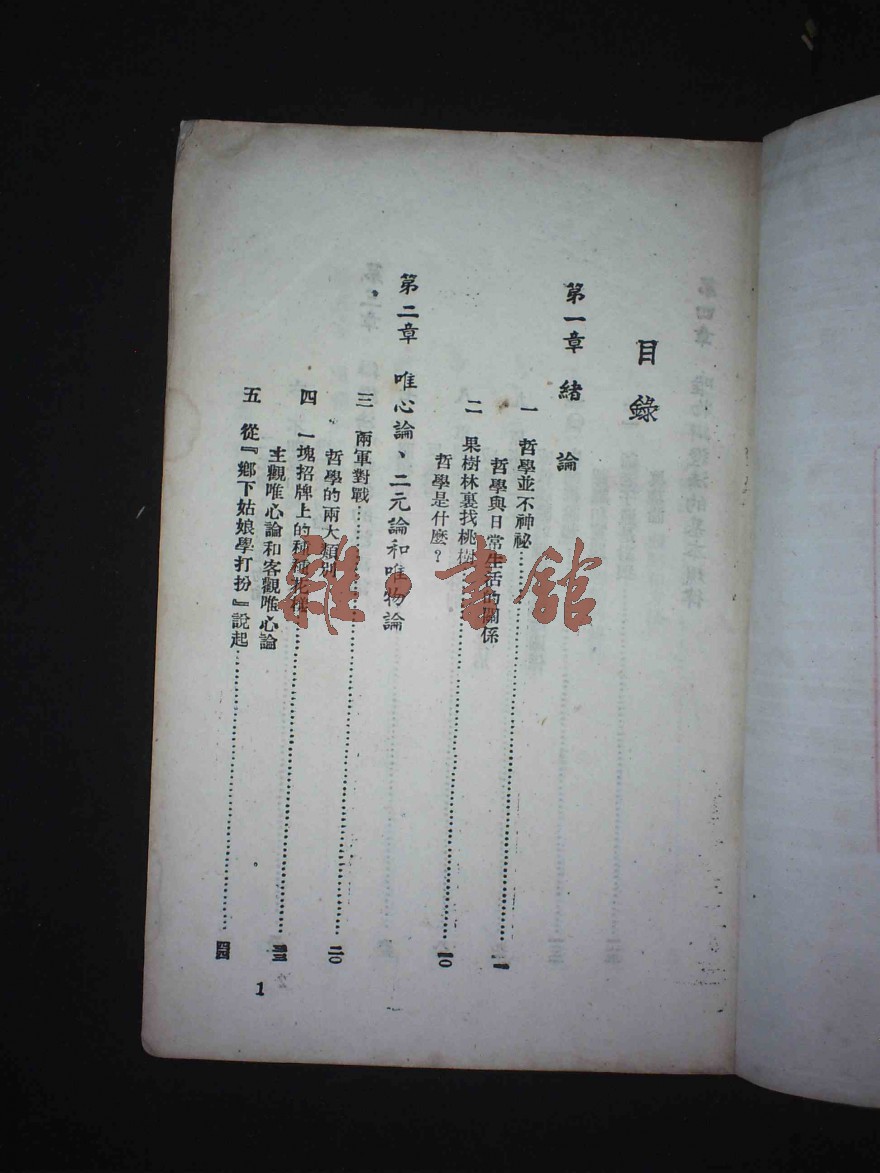 目錄
第一章 緒論
一 哲學並不神祕……一
哲學與日常生活的關係
二 果樹林裏找桃樹……一〇
哲學是什麼？
第二章 唯心論、二元論和唯物論
三 兩軍對戰……二〇
哲學的兩大類別
四 一塊招牌上的種種花樣……三三
主觀唯心論和客觀唯心論
五 從『鄉下姑娘學打扮』說起……四四
1
雜·書館